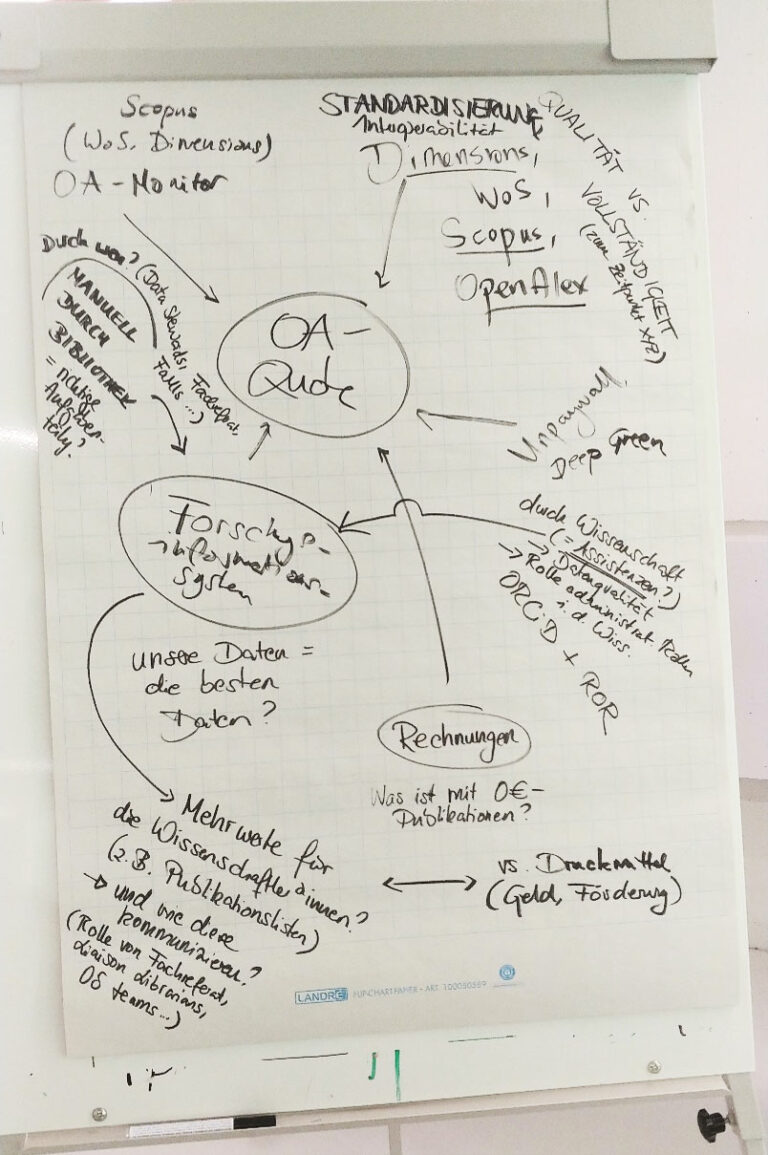 Scopus
(WoS, Dimensions)
OA-Monitor
STANDARDISIERUNG,
Interoperabilität
Dimensions,
WoS,
Scopus,
OpenAlex
QUALITÄT VS.
VOLLSTÄNDIGKEIT
(zum Zeitpunkt XYZ)
Durch wen? (Data Stewards,
Fachreferat,
FaMIs ...)
MANUELL
DURCH
BIBLIOTHEK
= richtige
Aufgaben-
teilg?
OA-
Quote
Unpaywall,
Deep Green
Forschgs-
informations-
system
durch Wissenschaft
(= Assistenzen?)
→ Datenqualität
→ Rolle administrat. Rollen
i. d. Wiss.
ORCiD + ROR
unsere Daten =
die besten
Daten?
Rechnungen
Was ist mit 0€-
Publikationen?
Mehrwerte für
die Wissenschaftler*innen?
(z.B. Publikationslisten)
→ und wie diese
kommunizieren?
(Rolle von Fachreferat,
liaison librarians,
OS teams...)
vs. Druckmittel
(Geld, Förderung)
LANDRÉ FLIPCHARTPAPIER - ART. 100050589